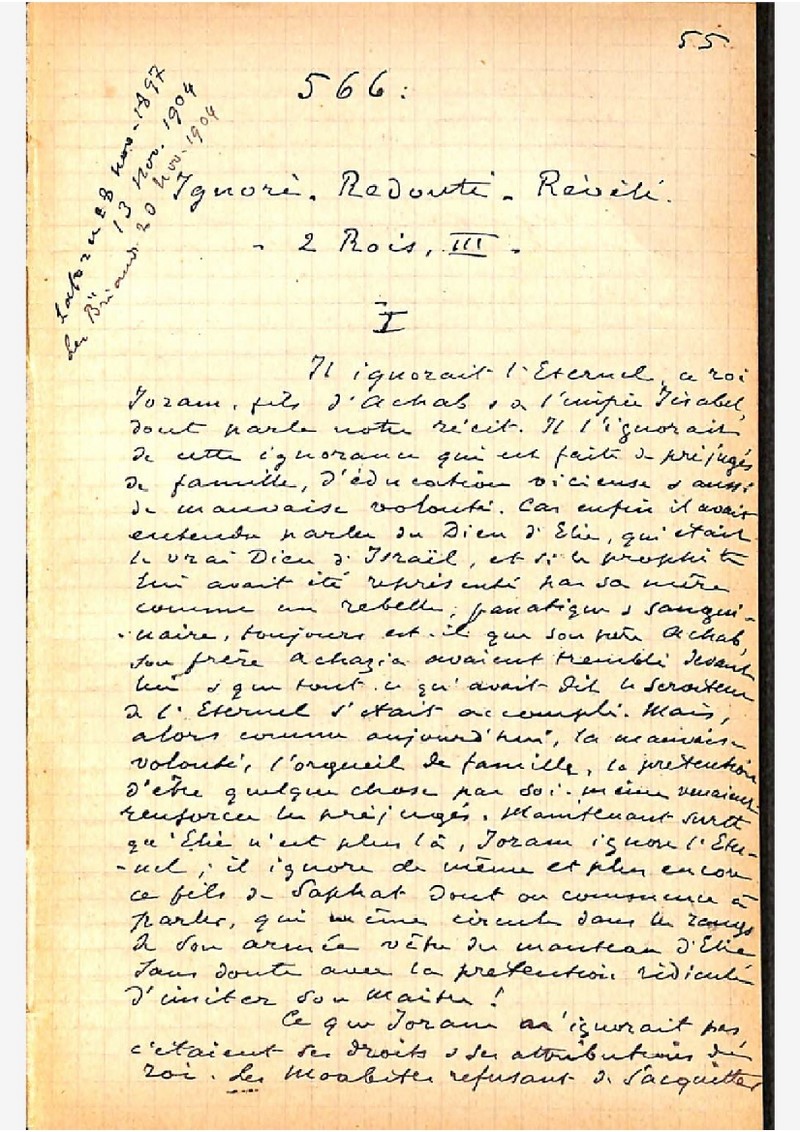 55.
566:
28 Nov. 1897
13 Nov. 1904
Les Briands 20 Nov. 1904
Ignoré. Redouté. Révélé.
- 2 Rois, III -
I
Il ignorait l'Eternel, ce roi
Joram, fils d'Achab & de l'impie Jésabel,
dont parle notre récit. Il l'ignorait
de cette ignorance qui est faite de préjugés
de famille, d'éducation vicieuse & aussi
de mauvaise volonté. Car enfin il avait
entendu parler du Dieu d'Elie, qui était
le vrai Dieu d'Israël, et si le prophète
lui avait été représenté par sa mère
comme un rebelle, fanatique & sangui-
-naire, toujours est-il que son père Achab,
son frère Achazia avaient tremblé devant
lui & que tout ce qu'avait dit le serviteur
de l'Eternel s'était accompli. Mais,
alors comme aujourd'hui, la mauvaise
volonté, l'orgueil de famille, la prétention
d'être quelque chose par soi-même venaient
renforcer les préjugés. Maintenant surtt
qu'Elie n'est plus là, Joram ignore l'Eter-
-nel ; il ignore de même et plus encore
ce fils de Saphat dont on commence à
parler, qui même circule dans les rangs
de son armée vêtu du manteau d'Elie
sans doute avec la prétention ridicule
d'imiter son Maître !
Ce que Joram n'ignorait pas
c'étaient ses droits & ses attributions de
roi. Les Moabites refusant de s'acquitter